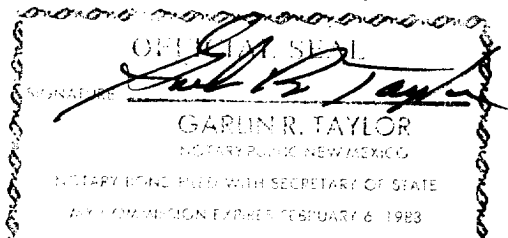 OFFICIAL SEAL
SIGNATURE
GARLIN R. TAYLOR
NOTARY PUBLIC NEW MEXICO
NOTARY BOND FILED WITH SECRETARY OF STATE
MY COMMISSION EXPIRES FEBRUARY 6 1983